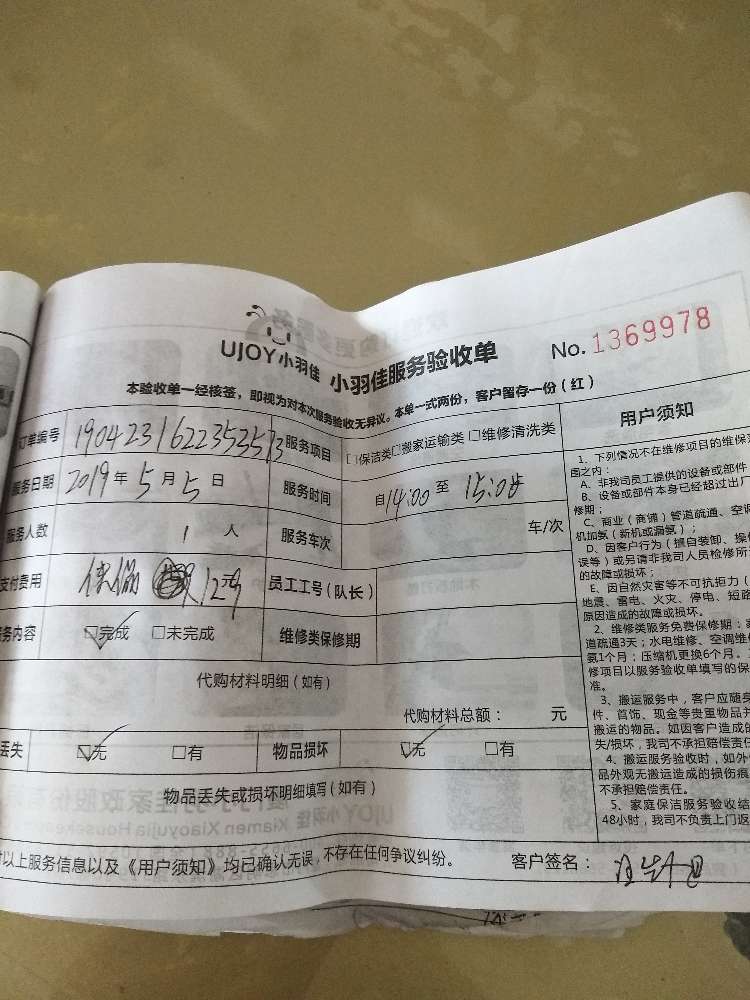 UJOY小羽佳 小羽佳服务验收单 No. 1369978
本验收单一经核签，即视为对本次服务验收无异议。本单一式两份，客户留存一份（红）
订单编号 服务项目 □保洁类□搬家运输类 □维修清洗类
服务日期 2019年5月5日 服务时间 自14:00至
服务人数 1 人 服务车次 车/次
支付费用 员工工号（队长）
务内容 ☑完成 □未完成 维修类保修期
代购材料明细（如有）
代购材料总额： 元
丢失 ☑无 □有 物品损坏 ☑无 □有
物品丢失或损坏明细填写（如有）
以上服务信息以及《用户须知》均已确认无误，不存在任何争议纠纷。 客户签名：
用户须知
1、下列情况不在维修项目的维保范
围之内：
A、非我司员工提供的设备或部件
B、设备或部件本身已经超过出厂
修期；
C、商业（商铺）管道疏通、空调
机加氨（新机或漏氨）；
D、因客户行为（擅自装卸、操作
误等）或另请非我司人员检修所
的故障或损坏；
E、因自然灾害等不可抗拒力（
地震、雷电、火灾、停电、短路
原因造成的故障或损坏。
2、维修类服务免费保修期：
道疏通3天；水电维修、空调维
氨1个月；压缩机更换6个月。
修项目以服务验收单填写的保
准。
3、搬运服务中，客户应随身
件、首饰、现金等贵重物品并
搬运的物品。如因客户造成的
失/损坏，我司不承担赔偿责任
4、搬运服务验收时，如外
品外观无搬运造成的损伤痕
不承担赔偿责任。
5、家庭保洁服务验收结
48小时，我司不负责上门返